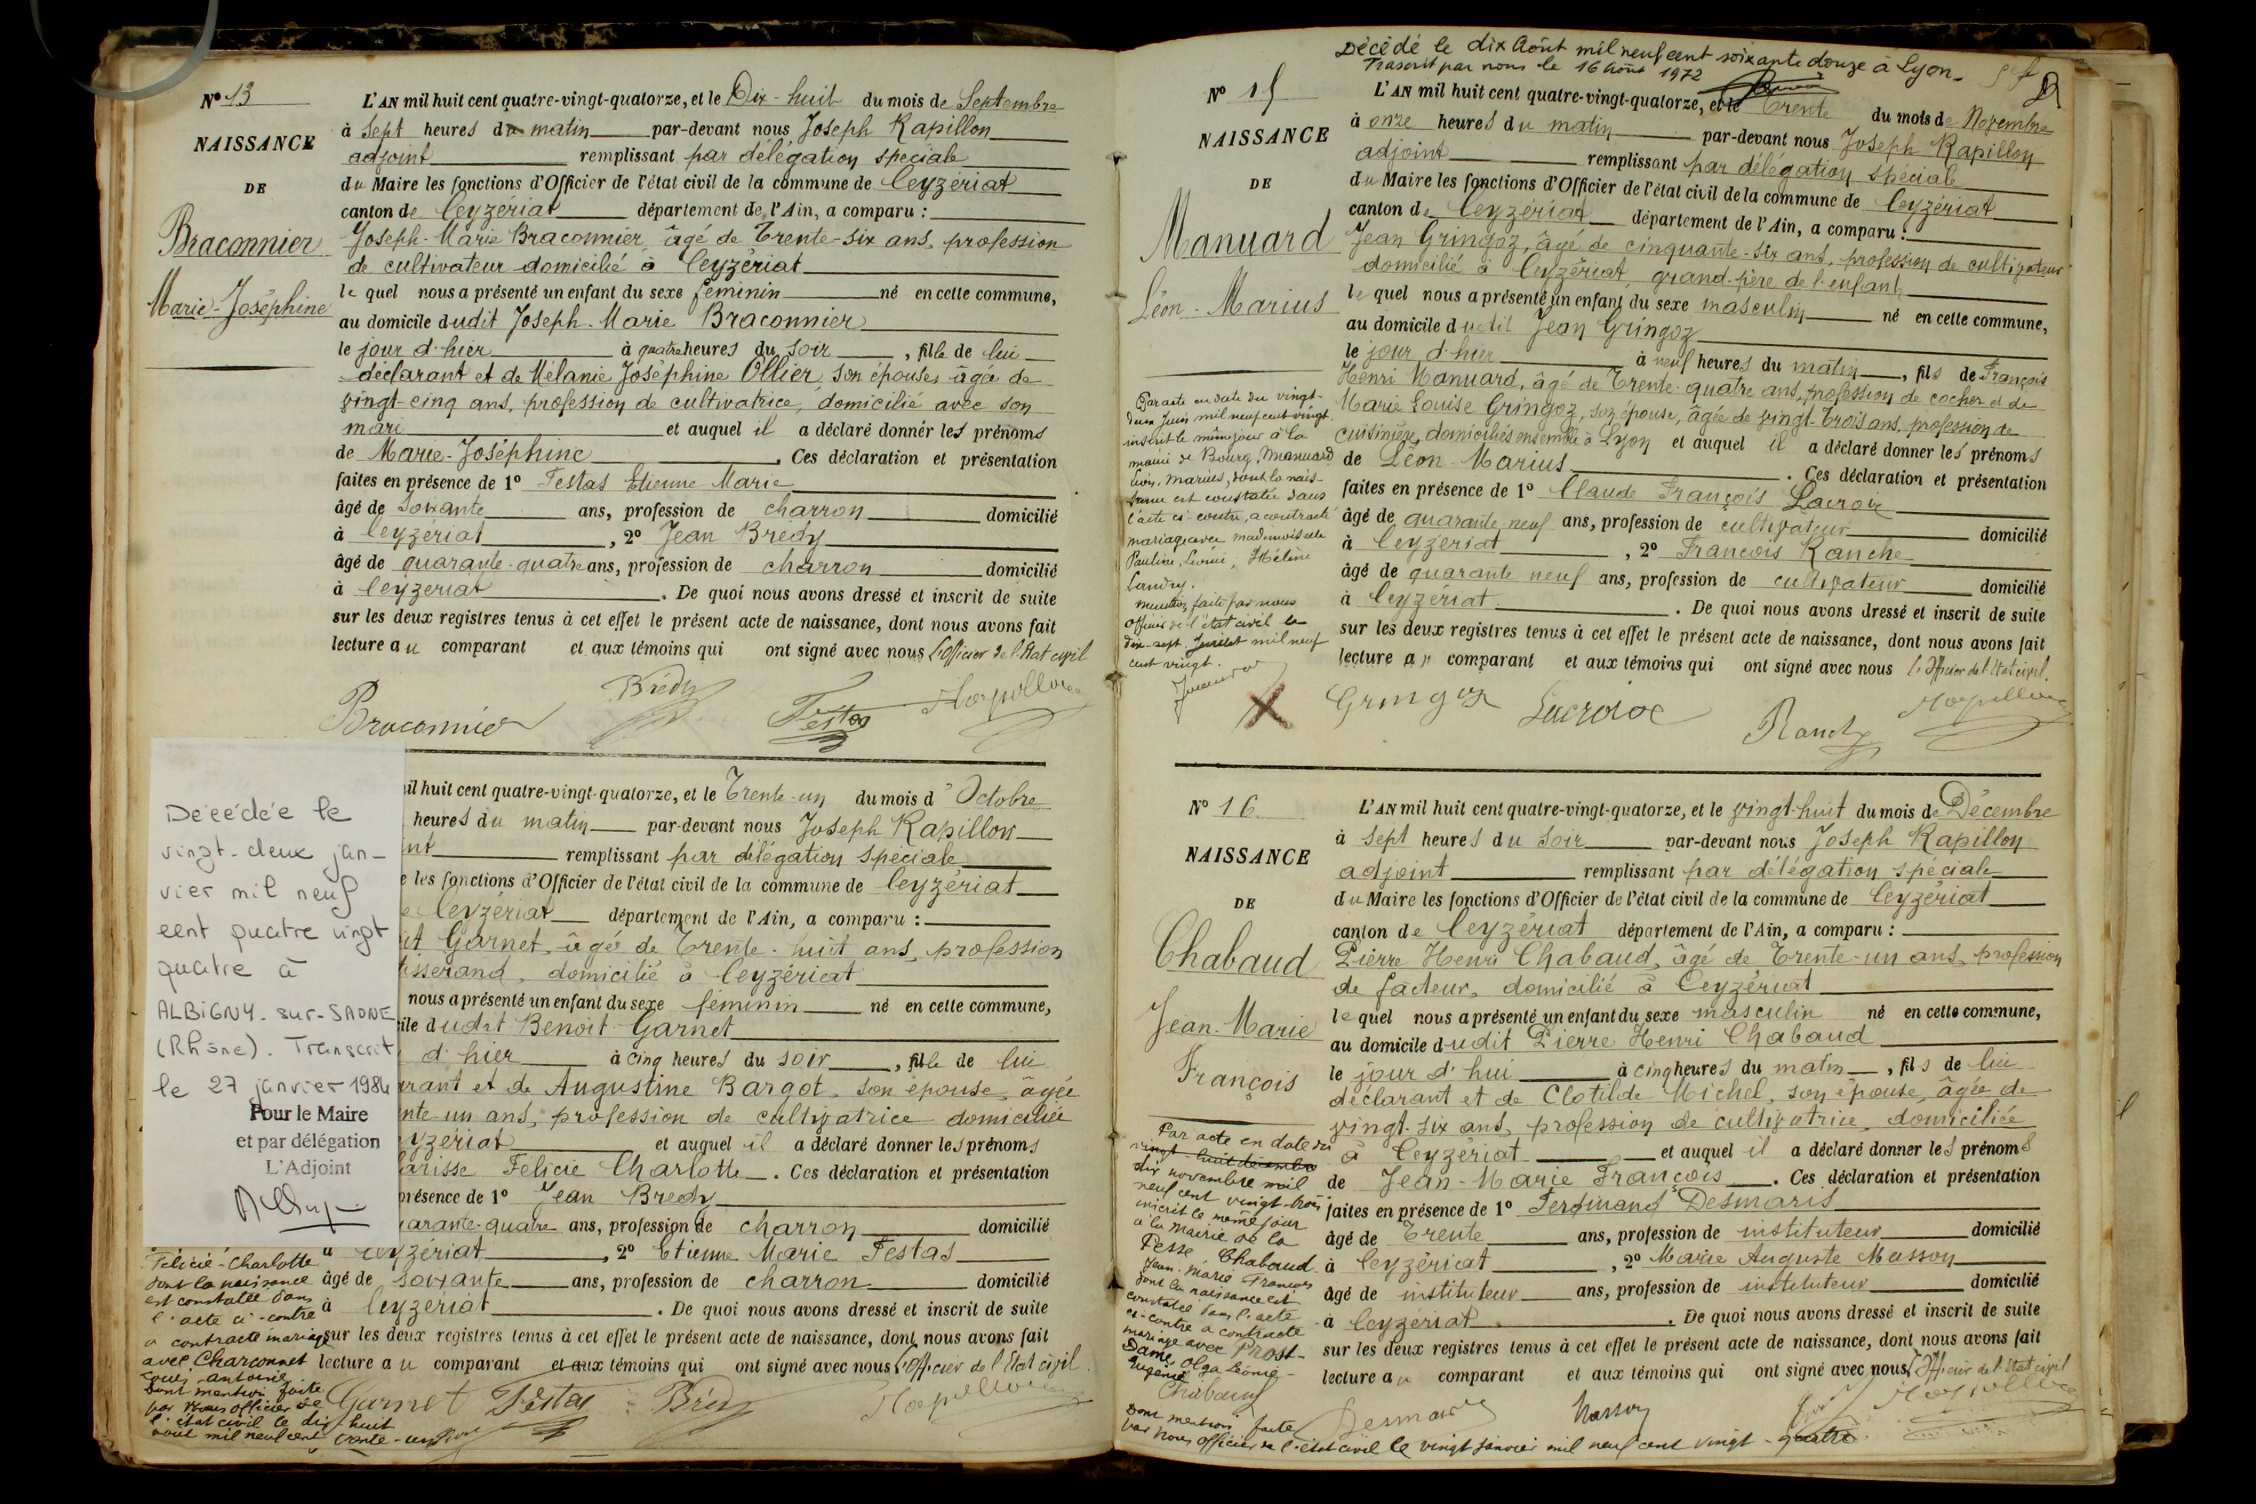 N° 13
NAISSANCE
DE
Braconnier
Marie-Joséphine
L'AN mil huit cent quatre-vingt-quatorze, et le Dix-huit du mois de Septembre
à sept heures du matin par-devant nous Joseph Rapillon
adjoint remplissant par délégation spéciale
du Maire les fonctions d'Officier de l'état civil de la commune de Ceyzériat
canton de Ceyzériat département de l'Ain, a comparu :
Joseph-Marie Braconnier, âgé de Trente-six ans, profession
de cultivateur domicilié à Ceyzériat
le quel nous a présenté un enfant du sexe féminin né en cette commune,
au domicile dudit Joseph-Marie Braconnier
le jour d'hier à quatre heures du soir, fille de lui
déclarant et de Mélanie Joséphine Ollier, son épouse, âgée de
vingt-cinq ans, profession de cultivatrice, domicilié avec son
mari et auquel il a déclaré donner les prénoms
de Marie-Joséphine. Ces déclaration et présentation
faites en présence de 1° Festas Etienne Marie
âgé de soixante ans, profession de charron domicilié
à Ceyzériat, 2° Jean Brédy
âgé de quarante-quatre ans, profession de charron domicilié
à Ceyzériat. De quoi nous avons dressé et inscrit de suite
sur les deux registres tenus à cet effet le présent acte de naissance, dont nous avons fait
lecture au comparant et aux témoins qui ont signé avec nous l'officier de l'Etat civil
Braconnier Brédy Festas Rapillon
Décédée le
vingt-deux jan-
vier mil neuf
cent quatre vingt
quatre à
ALBIGNY-sur-SAONE
(Rhône). Transcrit
le 27 janvier 1984
Pour le Maire
et par délégation
L'Adjoint
il huit cent quatre-vingt-quatorze, et le Trente-un du mois d'Octobre
heures du matin par-devant nous Joseph Rapillon
nt remplissant par délégation spéciale
e les fonctions d'Officier de l'état civil de la commune de Ceyzériat
e Ceyzériat département de l'Ain, a comparu :
it Garnet, âgé de Trente-huit ans, profession
isserand, domicilié à Ceyzériat
nous a présenté un enfant du sexe féminin né en cette commune,
ile dudit Benoit Garnet
d'hier à cinq heures du soir, fille de lui
arant et de Augustine Bargot, son épouse, âgée
nte-un ans, profession de cultivatrice domiciliée
yzériat et auquel il a déclaré donner les prénoms
arisse Felicie Charlotte. Ces déclaration et présentation
présence de 1° Jean Bredy
arante-quatre ans, profession de charron domicilié
à Ceyzériat, 2° Etienne Marie Festas
âgé de soixante ans, profession de charron domicilié
à Ceyzériat. De quoi nous avons dressé et inscrit de suite
sur les deux registres tenus à cet effet le présent acte de naissance, dont nous avons fait
lecture au comparant et aux témoins qui ont signé avec nous l'officier de l'Etat civil
Garnet Festas Brédy Rapillon
Félicie-Charlotte
dont la naissance
est constatée dans
l'acte ci-contre
a contracté mariage
avec Charconnet
Louis-Antoine
Dont mention faite
par nous officier de
l'état civil le dix-huit
aout mil neuf cent trente-un
Décédé le dix Août mil neuf cent soixante douze à Lyon.
Trascrit par nous le 16 Août 1972
N° 15
NAISSANCE
DE
Manuard
Léon-Marius
L'AN mil huit cent quatre-vingt-quatorze, et le Trente du mois de Novembre
à onze heures du matin par-devant nous Joseph Rapillon
adjoint remplissant par délégation spéciale
du Maire les fonctions d'Officier de l'état civil de la commune de Ceyzériat
canton de Ceyzériat département de l'Ain, a comparu :
Jean Gringoz, âgé de cinquante-six ans, profession de cultivateur
domicilié à Ceyzériat, grand-père de l'enfant
le quel nous a présenté un enfant du sexe masculin né en cette commune,
au domicile dudit Jean Gringoz
le jour d'hier à neuf heures du matin, fils de François
Henri Manuard, âgé de Trente-quatre ans, profession de cocher et de
Marie Louise Gringoz, son épouse, âgée de vingt-trois ans, profession de
cuisinière, domiciliés ensemble à Lyon et auquel il a déclaré donner les prénoms
de Léon-Marius. Ces déclaration et présentation
faites en présence de 1° Claude François Lacroix
âgé de quarante neuf ans, profession de cultivateur domicilié
à Ceyzériat, 2° François Ranche
âgé de quarante neuf ans, profession de cultivateur domicilié
à Ceyzériat. De quoi nous avons dressé et inscrit de suite
sur les deux registres tenus à cet effet le présent acte de naissance, dont nous avons fait
lecture au comparant et aux témoins qui ont signé avec nous l'officier de l'état civil.
Gringoz Lacroix Ranche Rapillon
Par acte en date du vingt-
deux Juin mil neuf cent vingt
inscrit le même jour à la
mairie de Bourg, Manuard
Léon, Marius, dont la nais-
sance est constatée dans
l'acte ci-contre, a contracté
mariage avec mademoiselle
Pauline, Léonie, Hélène
Landry.
Mention faite par nous
officier de l'état civil le
dix-sept Juillet mil neuf
cent vingt.
N° 16
NAISSANCE
DE
Chabaud
Jean-Marie
François
L'AN mil huit cent quatre-vingt-quatorze, et le vingt-huit du mois de Décembre
à sept heures du soir par-devant nous Joseph Rapillon
adjoint remplissant par délégation spéciale
du Maire les fonctions d'Officier de l'état civil de la commune de Ceyzériat
canton de Ceyzériat département de l'Ain, a comparu :
Pierre Henri Chabaud, âgé de Trente-un ans, profession
de facteur, domicilié à Ceyzériat
le quel nous a présenté un enfant du sexe masculin né en cette commune,
au domicile dudit Pierre Henri Chabaud
le jour d'hui à cinq heures du matin, fils de lui
déclarant et de Clotilde Michel, son épouse, âgée de
vingt-six ans, profession de cultivatrice, domiciliée
à Ceyzériat et auquel il a déclaré donner les prénoms
de Jean-Marie François. Ces déclaration et présentation
faites en présence de 1° Ferdinand Desmaris
âgé de Trente ans, profession de instituteur domicilié
à Ceyzériat, 2° Marie Auguste Masson
âgé de instituteur ans, profession de instituteur domicilié
à Ceyzériat. De quoi nous avons dressé et inscrit de suite
sur les deux registres tenus à cet effet le présent acte de naissance, dont nous avons fait
lecture au comparant et aux témoins qui ont signé avec nous l'officier de l'état civil
Chabaud Desmaris Masson Rapillon
Par acte en date du
vingt-huit décembre
dix novembre mil
neuf cent vingt-trois
inscrit le même jour
à la mairie de la
Pesse Chabaud
Jean-Marie François
dont la naissance est
constatée dans l'acte
ci-contre a contracté
mariage avec Prost-
Dame, Olga Léonie-
Eugénie
Dont mention faite
par nous officier de l'état civil le vingt janvier mil neuf cent vingt-quatre.